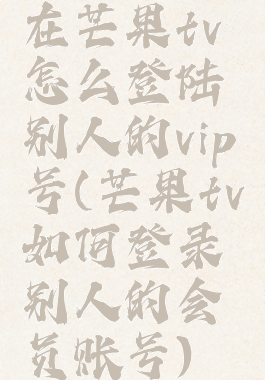 在芒果tv
怎么登陆
别人的vip
号(芒果tv
如何登录
别人的会
员账号)